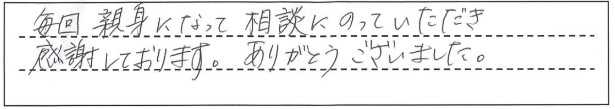 毎回 親身になって 相談にのっていただき
感謝しております。ありがとうございました。